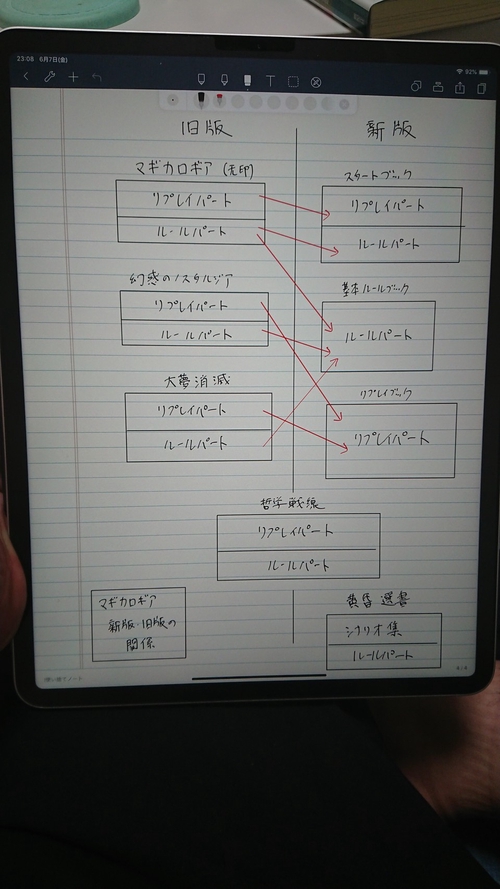 23:08 6月7日(金)
92%
旧版
新版
マギカロギア (無印)
リプレイパート
ルールパート
スタートブック
リプレイパート
ルールパート
幻惑のノスタルジア
リプレイパート
ルールパート
基本ルールブック
ルールパート
大夢消滅
リプレイパート
ルールパート
リプレイブック
リプレイパート
哲学戦線
リプレイパート
ルールパート
マギカロギア
新版・旧版の
関係
黄昏選書
シナリオ集
ルールパート